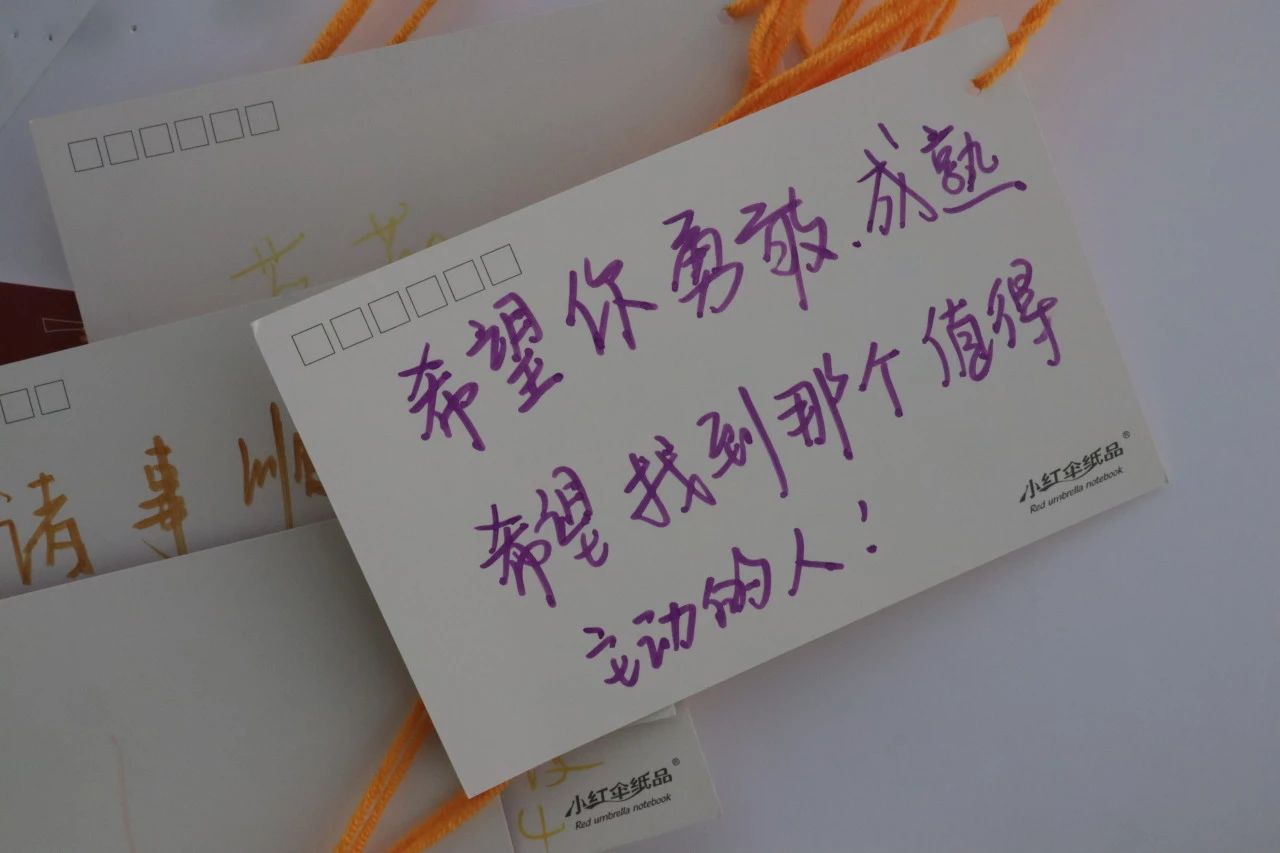 希望你勇敢.成熟
希望找到那个值得
主动的人!
小红伞纸品®
Red umbrella notebook
诸事顺
小红伞纸品®
Red umbrella notebook